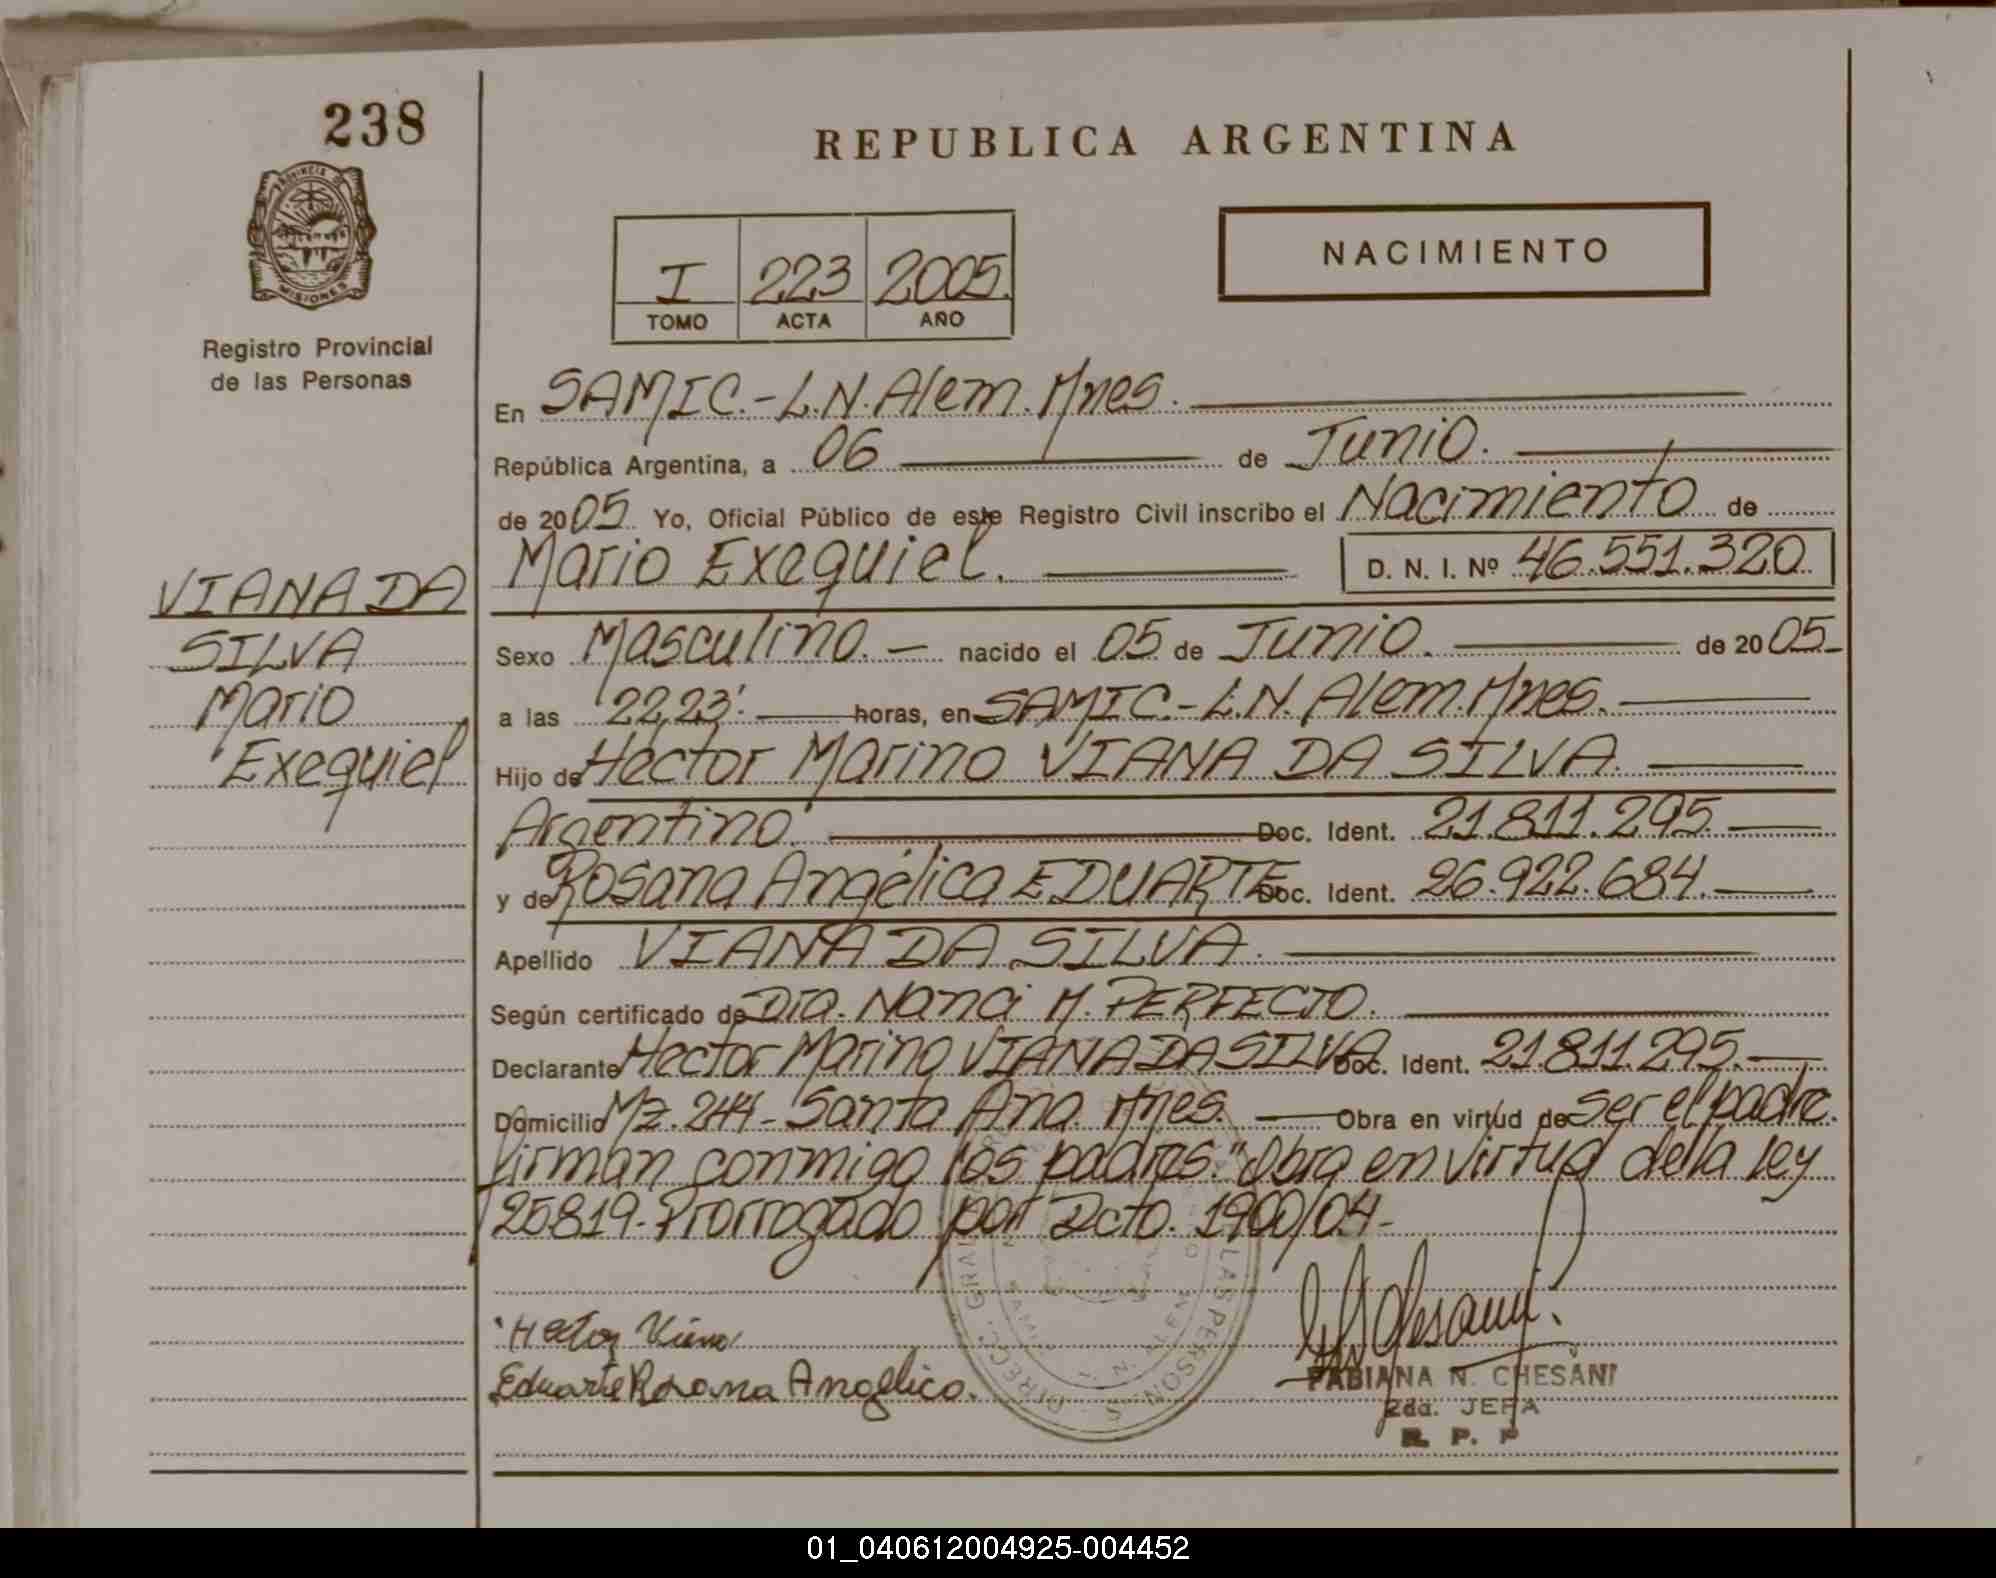 238
REPUBLICA ARGENTINA
PROVINCIA DE
MISIONES
Registro Provincial
de las Personas
I 223 2005
TOMO ACTA AÑO
NACIMIENTO
En SAMIC.-L.N.Alem.Mnes.
República Argentina, a 06 de Junio.
de 2005 Yo, Oficial Público de este Registro Civil inscribo el Nacimiento de
Mario Exequiel. D. N. I. Nº 46.551.320
VIANA DA
SILVA
Mario
Exequiel
Sexo Masculino.- nacido el 05 de Junio. de 2005-
a las 22,23' horas, en SAMIC.-L.N. Alem.Mnes.
Hijo de Hector Marino VIANA DA SILVA
Argentino. Doc. Ident. 21.811.295
y de Rosana Angélica EDUARTE Doc. Ident. 26.922.684.
Apellido VIANA DA SILVA.
Según certificado de Dra. Nanci M. PERFECTO.
Declarante Hector Marino VIANA DA SILVA Doc. Ident. 21.811.295.
Domicilio Mz. 244- Santa Ana. Mnes. Obra en virtud de Ser el padre.
Firman conmigo los padres." Obra en virtud de la Ley
25819-Prorrogado por Dcto. 1900/04-
Hector Viana
Eduarte Rosana Angelica.
FABIANA N. CHESANI
2da. JEFA
R. P. P
01_040612004925-004452